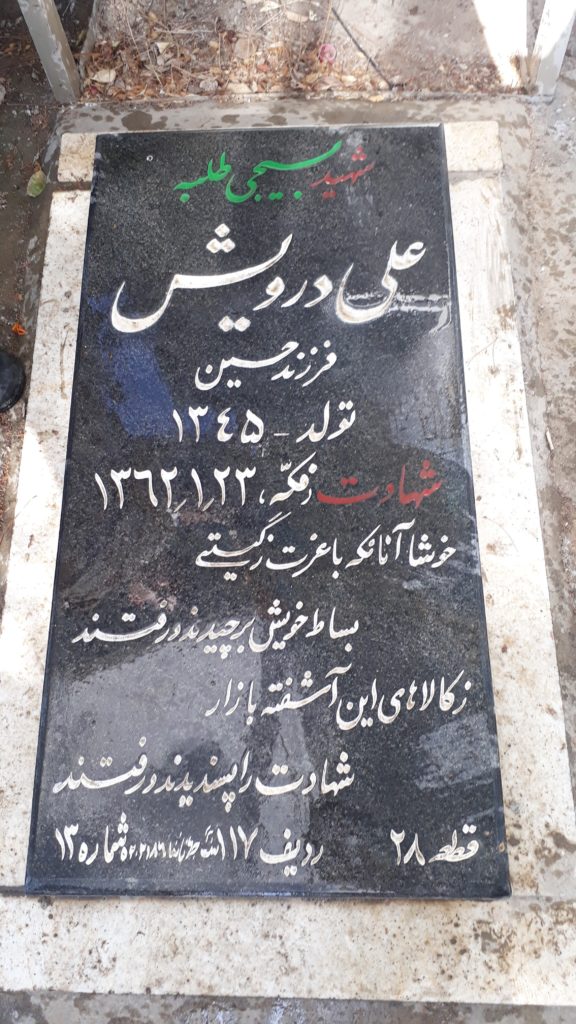 شهید بسیجی طلبه
علی درویش
فرزند حسین
تولد - ۱۳۴۵
شهادت فکه، ۱۳۶۲٫۱٫۲۳
خوشا آنانکه با عزت زگیتی
بساط خویش برچیدند و رفتند
ز کالاهای این آشفته بازار
شهادت را پسندیدند و رفتند
قطعه ۲۸ ردیف ۱۱۷ شماره ۱۳